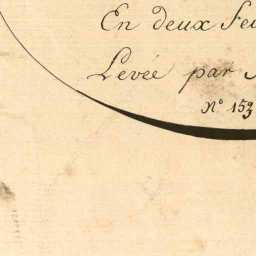 En deux
Levée par
N° 153